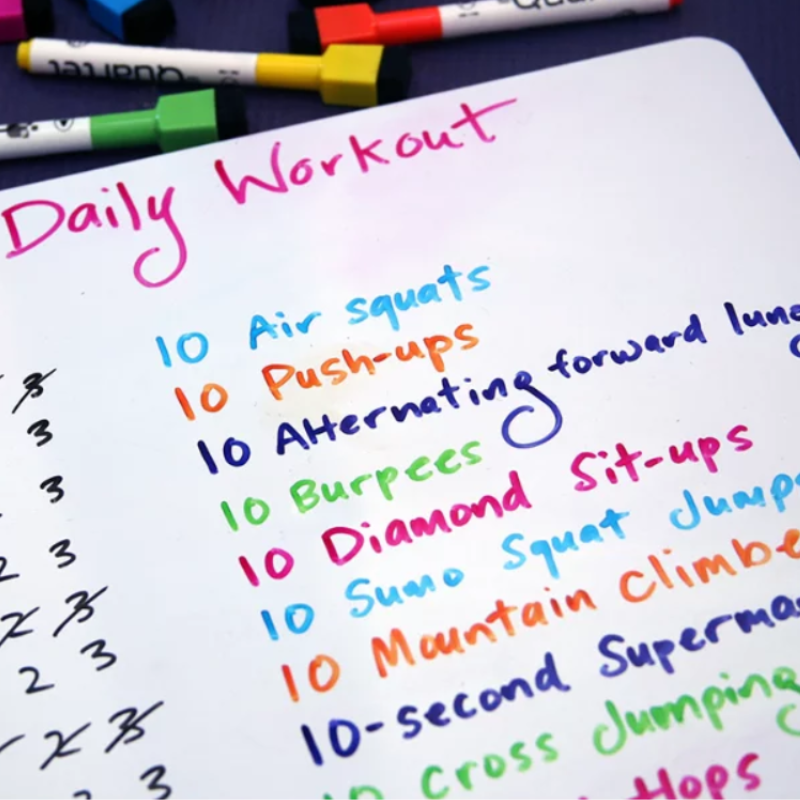 Quartet
Daily Workout
3 10 Air squats
3 10 Push-ups
3 10 Alternating forward
2 3 10 Burpees
2 3 10 Diamond Sit-ups
2 3 10 Sumo Squat Jumps
2 3 10 Mountain
3 10-second
10 Cross Jumping
Hops